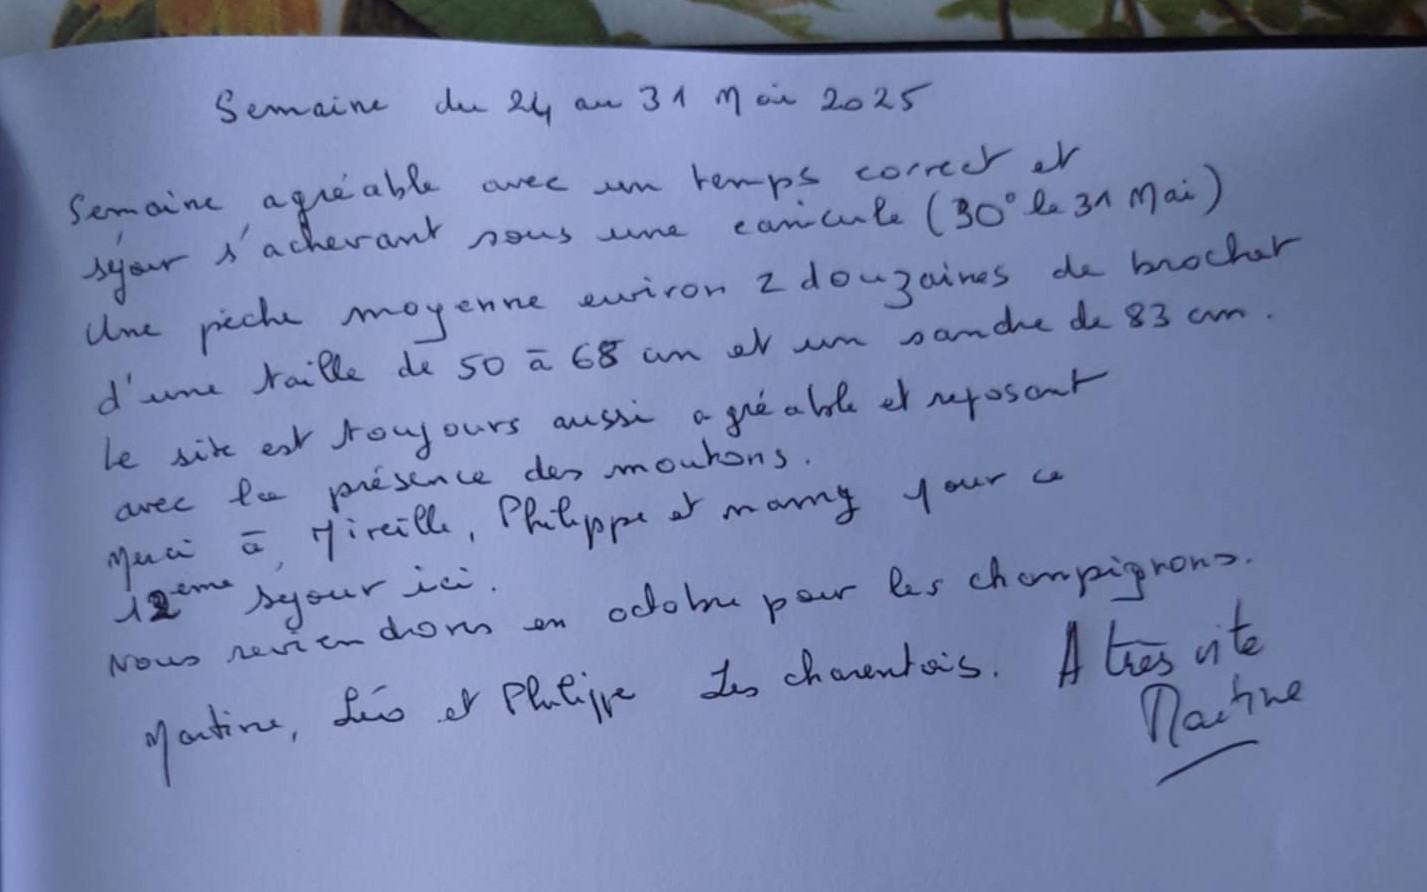 Semaine du 24 au 31 Mai 2025
Semaine agréable avec un temps correct et
séjour s'achevant sous une canicule (30° le 31 Mai)
Une pèche moyenne environ 2 douzaines de brochet
d'une taille de 50 à 68 cm et un sandre de 83 cm.
Le site est toujours aussi agréable et reposant
avec la présence des moutons.
Merci à Mireille, Philippe et mamy pour ce
12ème séjour ici.
Nous reviendrons en octobre pour les champignons.
Martine, Léo et Philippe Les charentais. A très vite
Martine